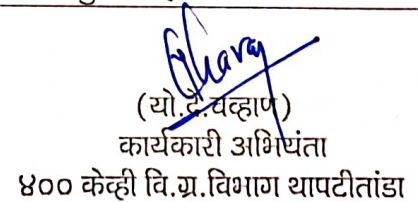 (यो.दै.चव्हाण)
कार्यकारी अभियंता
४०० केव्ही वि.ग्र.विभाग थापटीतांडा